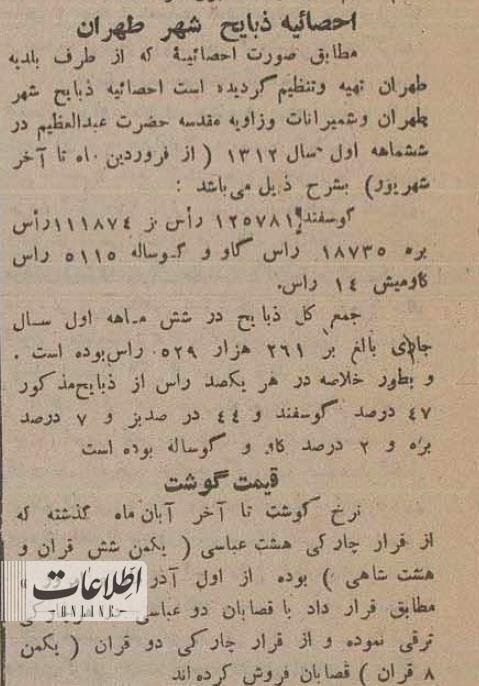 احصائیه ذبایح شهر طهران
مطابق صورت احصائیهٔ که از طرف بلدیه
طهران تهیه وتنظیم گردیده است احصائیه ذبایح شهر
طهران وشمیرانات وزاویه مقدسه حضرت عبدالعظیم در
ششماهه اول سال ۱۳۱۲ ( از فروردین ماه تا آخر
شهریور) بشرح ذیل می باشد :
گوسفند ۱۲۵۷۸۱ رأس بز ۱۱۱۸۷٤ رأس
بره ۱۸۷۳۵ راس گاو و گوساله ۵۱۱۵ راس
گاومیش ۱٤ راس.
جمع کل ذبایح در شش ماهه اول سال
جاری بالغ بر ۲٦۱ هزار ۵۲۹ راس بوده است .
و بطور خلاصه در هر یکصد راس از ذبایح مذکور
٤۷ درصد گوسفند و ٤٤ در صد بز و ۷ درصد
بره و ۲ درصد گاو و گوساله بوده است
قیمت گوشت
نرخ گوشت تا آخر آبان ماه گذشته که
از قرار چارکی هشت عباسی ( یکمن شش قران و
هشت شاهی ) بوده از اول آذر
مطابق قرار داد با قصابان دو عباسی
ترقی نموده و از قرار چارکی دو قران ( یکمن
۸ قران ) قصابان فروش کرده اند
اطلاعات